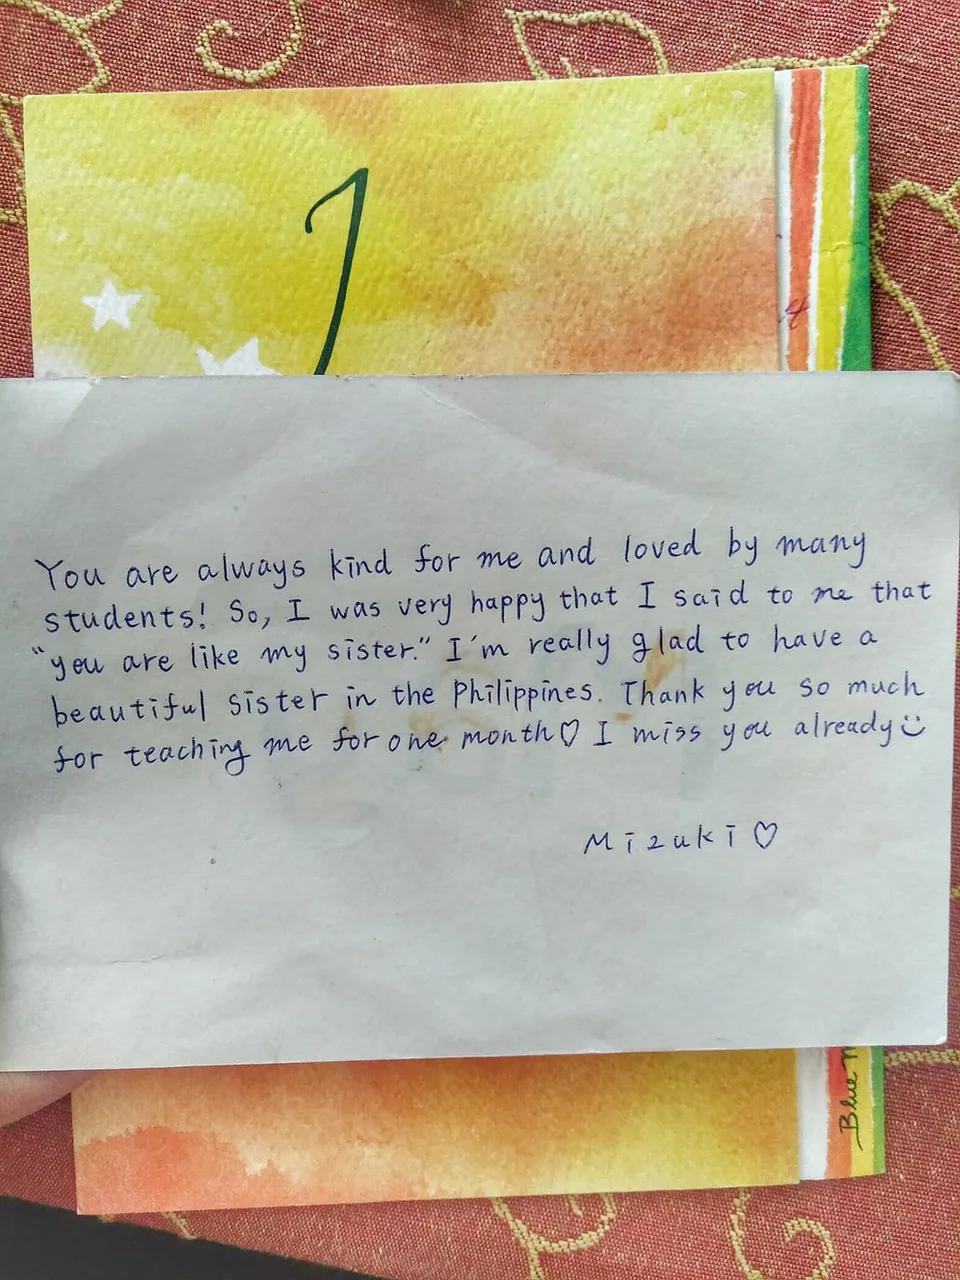 You are always kind for me and loved by many
students! So, I was very happy that I said to me that
"you are like my sister." I'm really glad to have a
beautiful sister in the Philippines. Thank you so much
for teaching me for one month♡ I miss you already
Mizuki♡
Blue